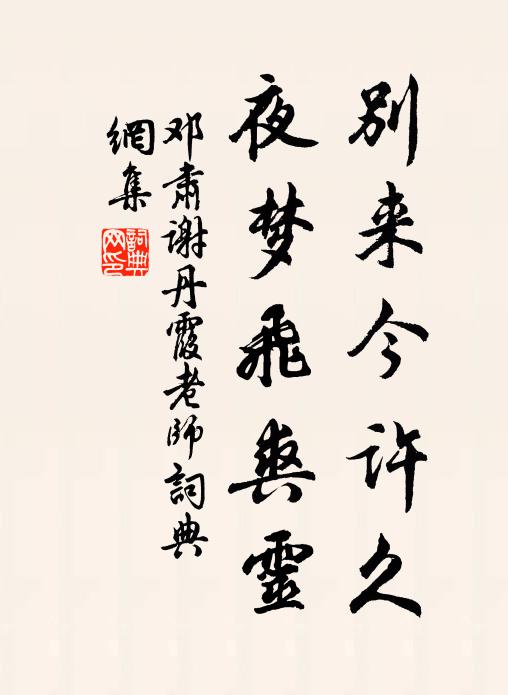 别来今许久
夜梦飛爽靈
邓肃谢丹霞老師詞典
網集
詞典
网印